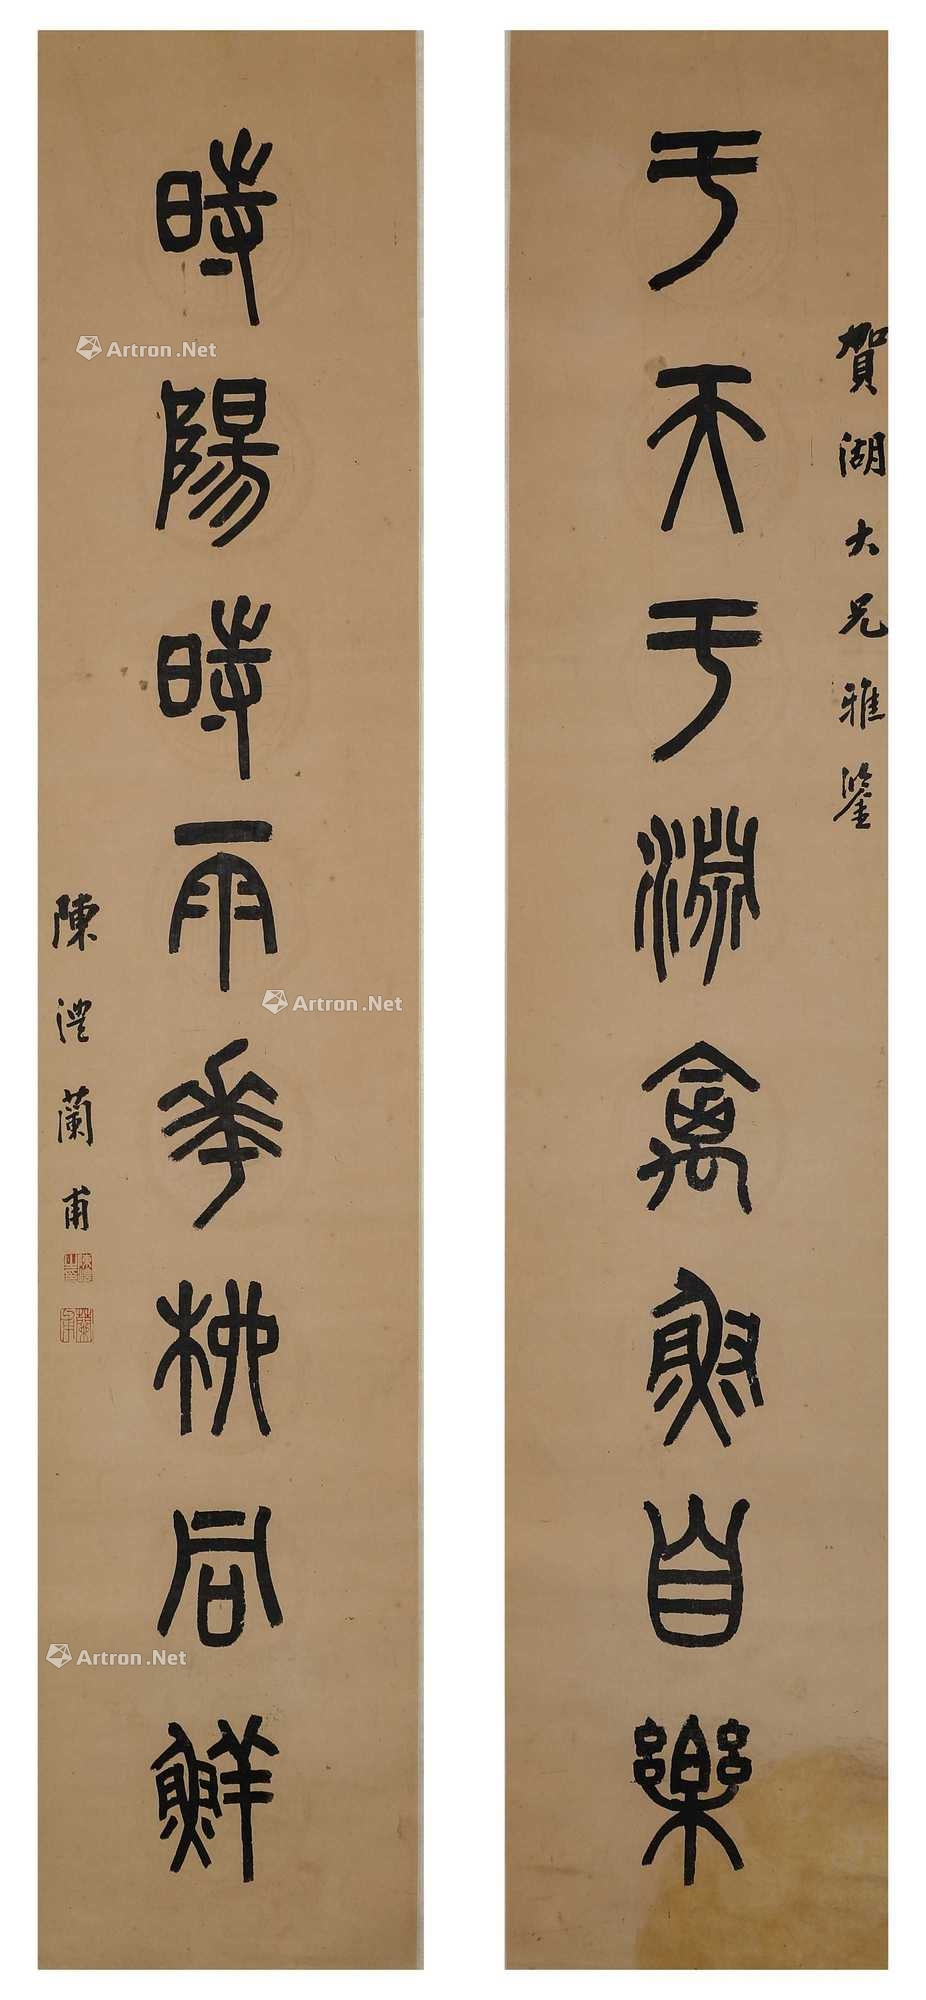 賀湖大兄雅鑒
于天于淵禽魚自樂
時陽時雨華柳同鮮
陳澧蘭甫
Artron.Net
Artron.Net
Artron.Net